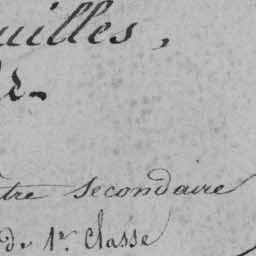 uilles,
tre secondaire
de 1re. Classe